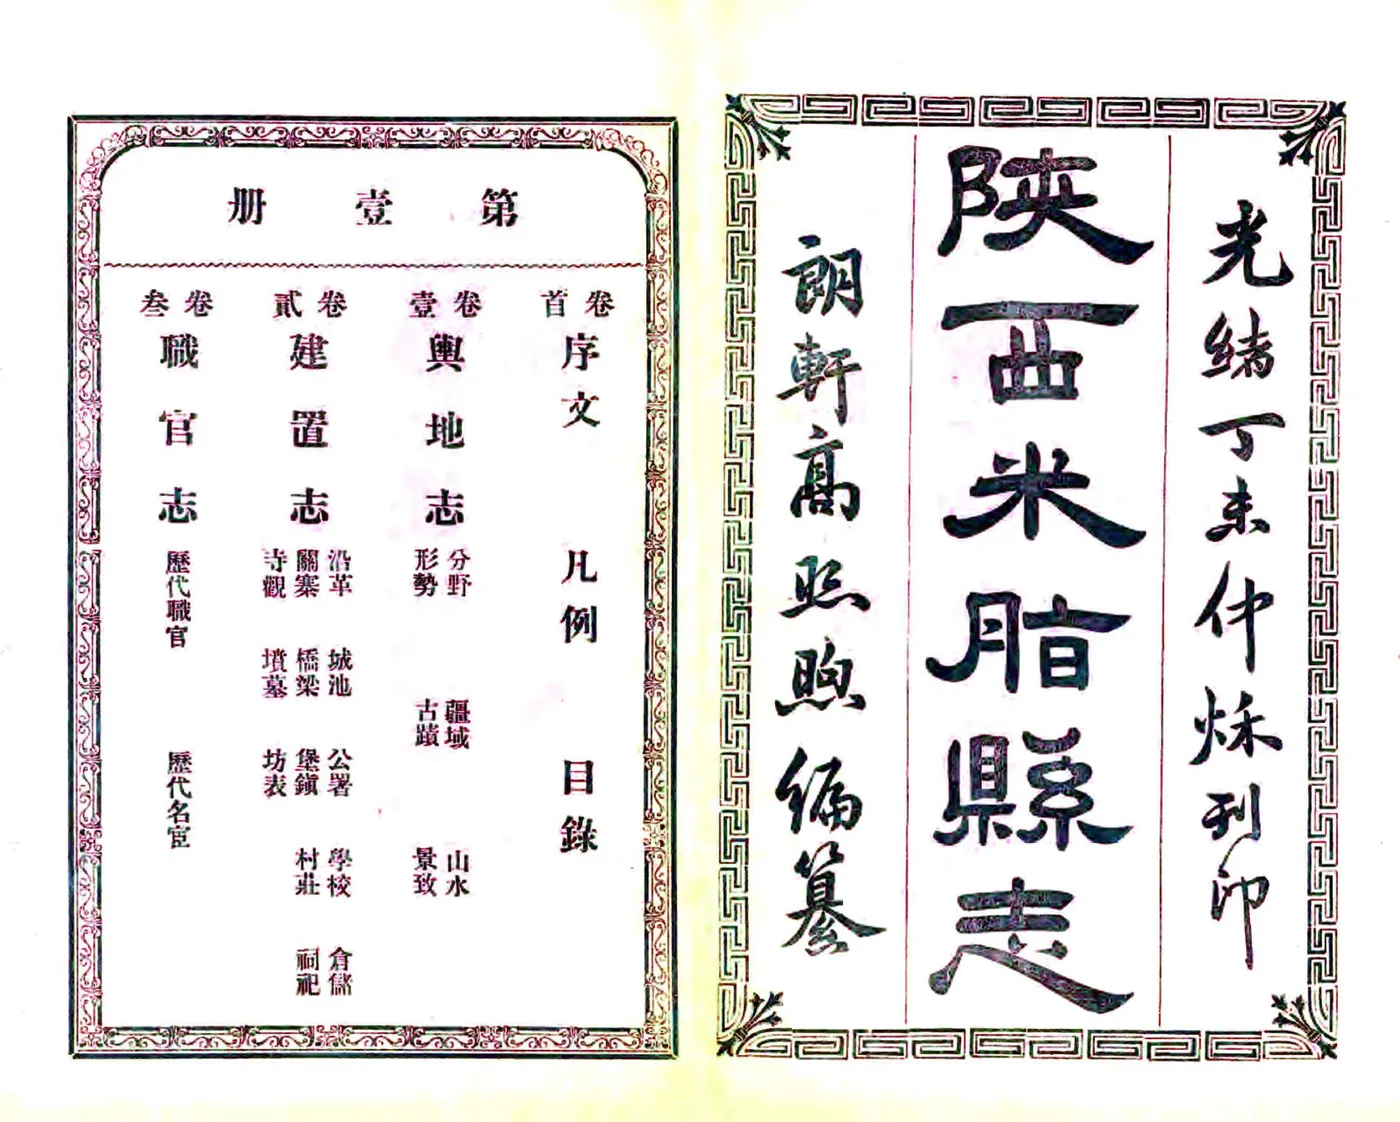 光緒丁未仲秌刊印
陝西米脂縣志
朗軒高照煦編纂
第壹册
卷首
序文 凡例 目錄
卷壹
輿地志
分野 疆域 山水
形勢 古蹟 景致
卷貳
建置志
沿革 城池 公署 學校 倉儲
關寨 橋梁 堡鎮 村莊 祠祀
寺觀 墳墓 坊表
卷叁
職官志
歷代職官 歷代名宦